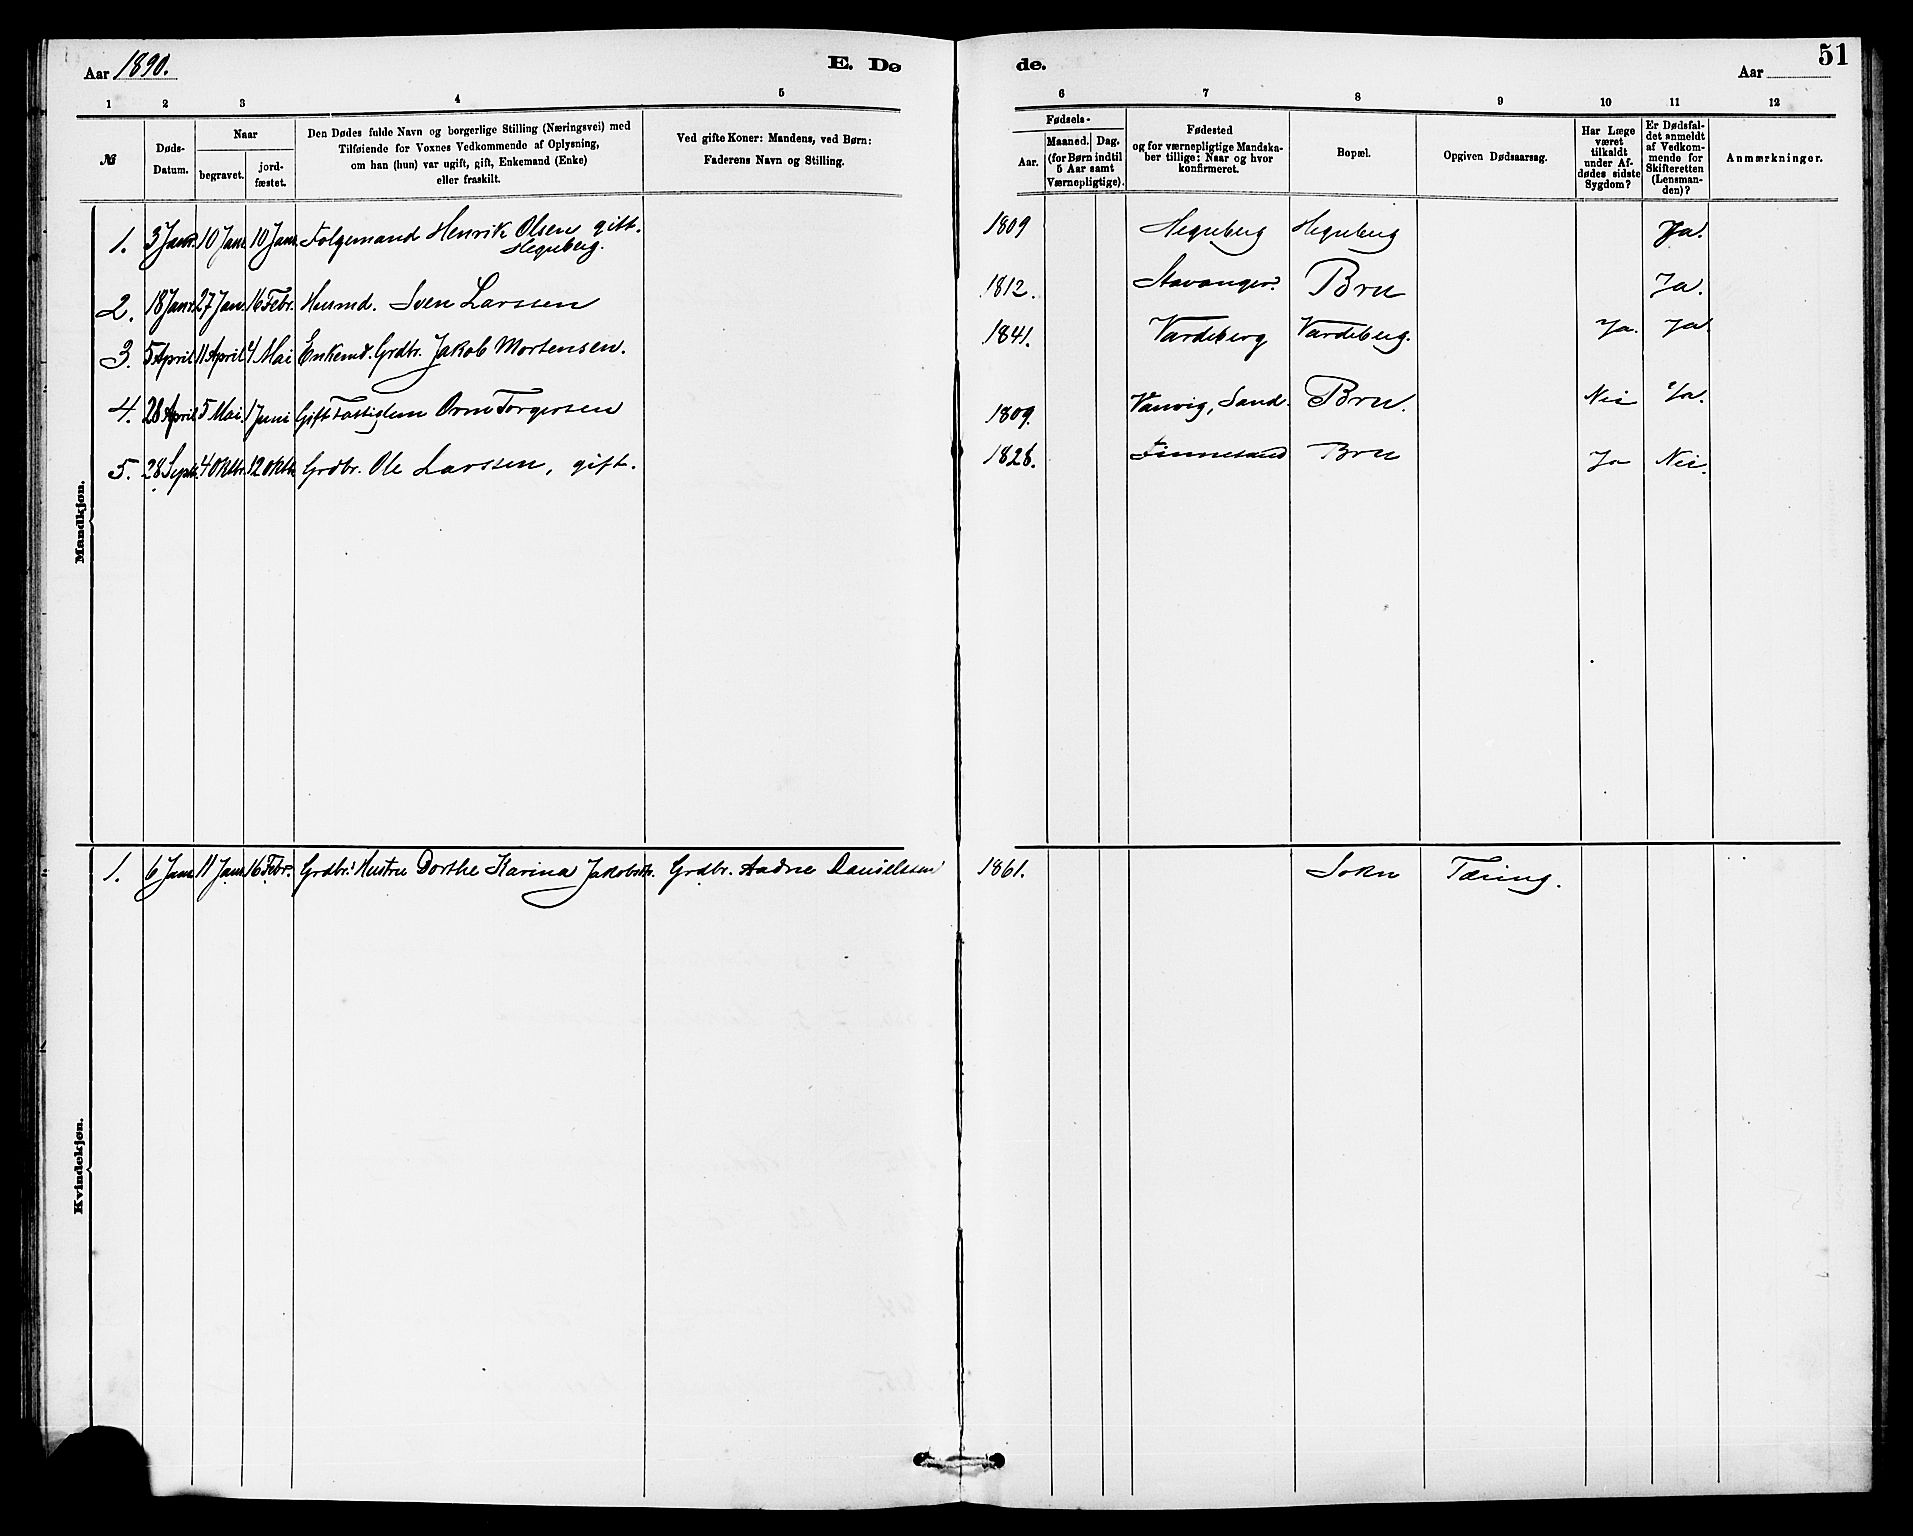 Aar 1890.
E. Dø
de.
Aar
51
1 2 3 4 5 6 7 8 9 10 11 12
№
Døds-
Datum.
Naar
begravet.
jord-
fæstet.
Den Dødes fulde Navn og borgerlige Stilling (Næringsvei) med
Tilføiende for Voxnes Vedkommende af Oplysning,
om han (hun) var ugift, gift, Enkemand (Enke)
eller fraskilt.
Ved gifte Koner: Mandens, ved Børn:
Faderens Navn og Stilling.
Fødsels-
Aar.
Maaned. Dag.
(for Børn indtil
5 Aar samt
Værnepligtige).
Fødested
og for værnepligtige Mandska-
ber tillige: Naar og hvor
konfirmeret.
Bopæl.
Opgiven Dødsaarsag.
Har Læge
været
tilkaldt
under Af-
dødes sidste
Sygdom?
Er Dødsfal-
det anmeldt
af Vedkom-
mende for
Skifteretten
(Lensman-
den)?
Anmærkninger.
Mandkjøn.
1. 3 Janr. 10 Janr. 10 Janr. Folgemand Henrik Olsen gift. 1809 Hegreberg Hegreberg Ja.
Hegreberg.
2. 18 Janr. 27 Janr. 16 Febr. Husmd. Sven Larssen 1812. Stavanger. Bru Ja.
3. 5 April 11 April 4 Mai Enkemd. Grdbr. Jakob Mortensen. 1841. Vardeberg Vardeberg. Ja. Ja.
4. 28 April 5 Mai. 1 Juni Gift Fattiglem Orm Torgersen 1809. Vanvig, Sand. Bru. Nei Ja.
5. 28 Septr. 4 Oktbr. 12 Oktbr. Grdbr. Ole Larssen, gift. 1828. Finnesand Bru Ja Nei.
Kvindekjøn.
1. 6 Janr. 11 Janr. 16 Febr. Grdbr. Hustru Dorthe Karina Jakobsdtr. Grdbr. Aadne Danielssen 1861. Sokn Tæring.